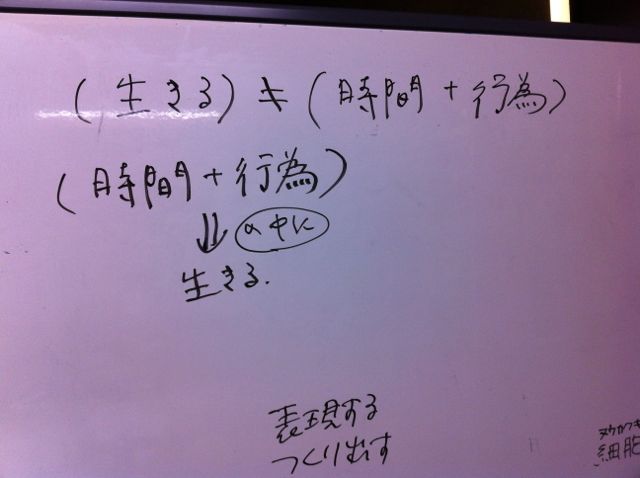 (生きる) ≠ (時間 + 行為)
(時間 + 行為)
⇓ の中に
生きる.
表現する
つくり出す
細胞